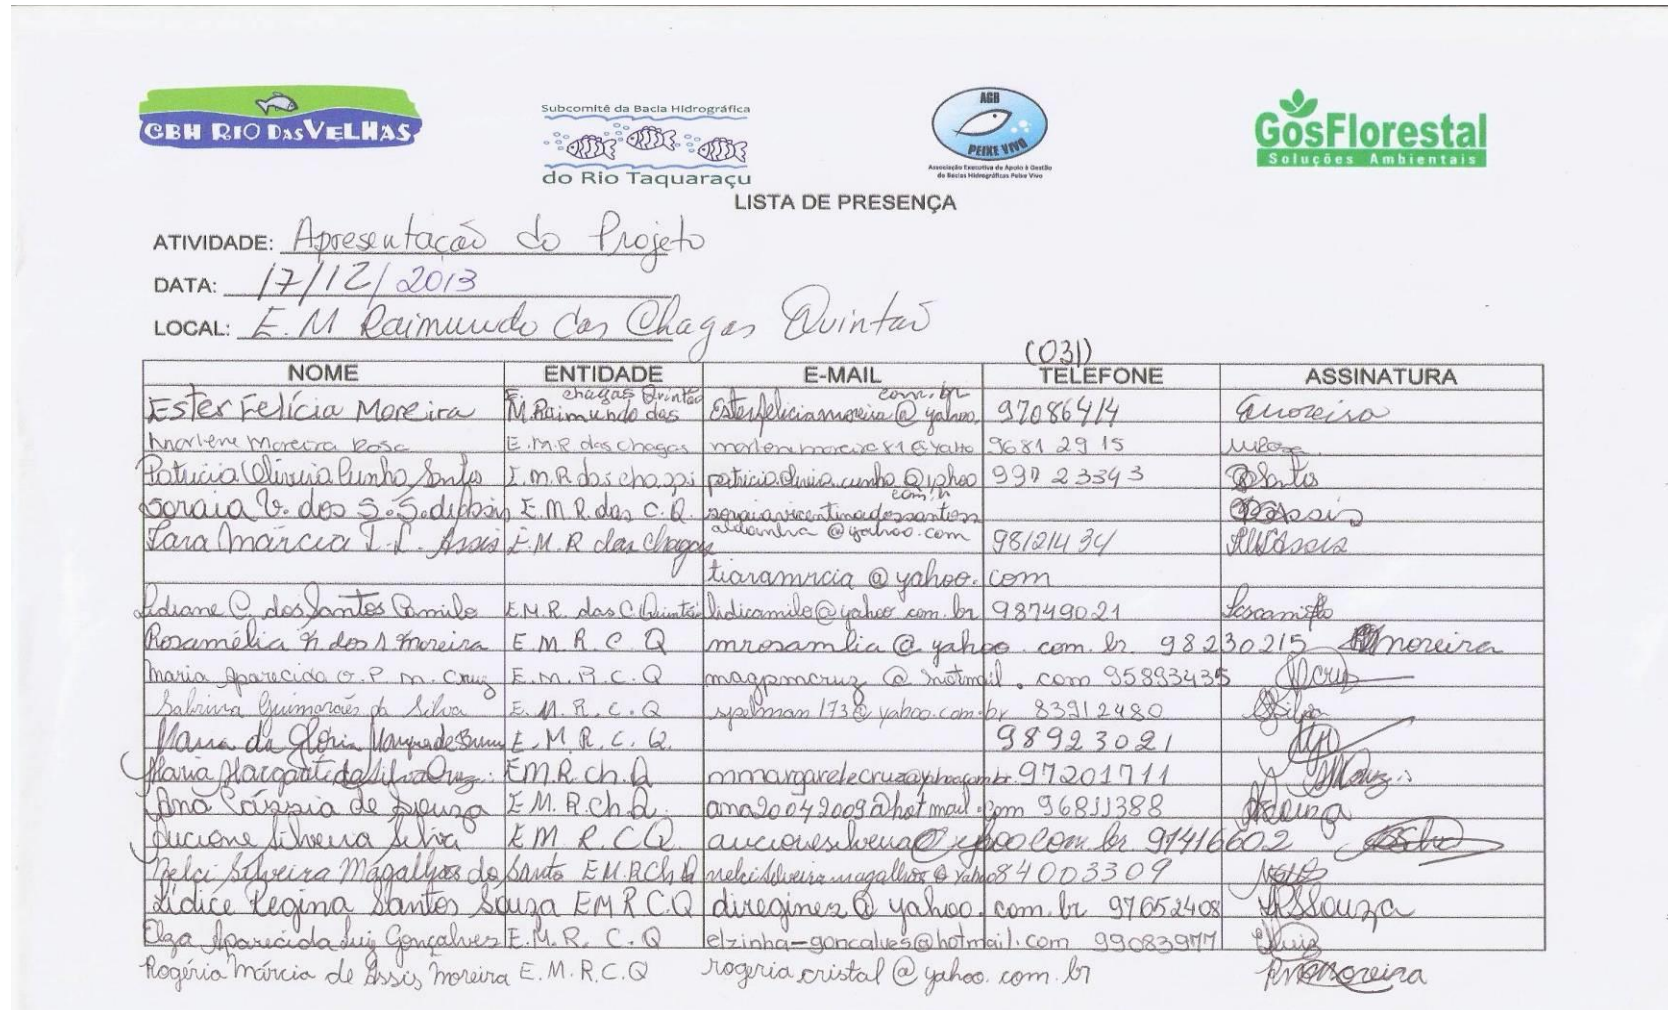 CBH RIO DAS VELHAS
Subcomitê da Bacia Hidrográfica
do Rio Taquaraçu
AGB
PEIXE VIVO
Associação Executiva de Apoio à Gestão
de Bacias Hidrográficas Peixe Vivo
GosFlorestal
Soluções Ambientais
LISTA DE PRESENÇA
ATIVIDADE: Apresentação do Projeto
DATA: 17/12/2013
LOCAL: E. M Raimundo das Chagas Quintão
(031)
NOME ENTIDADE E-MAIL TELEFONE ASSINATURA
Ester Felícia Moreira E. M. Raimundo das chagas Quintão Esterfeliciamoreira@yahoo.com.br 97086414 Emoreira
Marlene Moreira Rosa E.M.R das chagas 9681 29 15
Patricia Oliveira Cunha Santos E.M.R das 997 23343 Santos
Soraia V. dos S. S. de Assis E.M.R. das C.Q. soraiavicentinadossantoss Assis
Iara Márcia T. L. Assis E.M.R das Chagas @yahoo.com 98121434
tiaramrcia@yahoo.com
Lidiane C. dos Santos Camilo E.M.R. das C. Quintão lidicamilo@yahoo.com.br 98749021 Lscamilo
Rosamélia dos Moreira E.M.R.C.Q mrosamlia@yahoo.com.br. 98230215 Moreira
Maria Aparecida G. P. M. Cruz E.M.R.C.Q magpmcruz@hotmail.com 95893435 Cruz
Sabrina Guimarães da Silva E.M.R.C.Q spelman173@yahoo.com.br 83912480 Silva
Maria da Glória E.M.R.C.Q. 98923021
Maria Margarete da Silva Cruz. E.M.R.Ch.Q mmargaretecruz@yahoo.com.br. 97201711 MCruz
Ana Cássia de Souza E.M.R.Ch.Q. ana20042009@hotmail.com 96811388 Souza
Lucione Silveira Silva EM R.C.Q. 91416602
Nelci Silveira Magalhães do Santo E.M.RCh.Q nelcisilveiramagalhaes@yahoo 84003309
Lídice Regina Santos Souza EMRC.Q direginez@yahoo.com.br 97652408 LRSSouza
Elza Aparecida Luiz Gonçalves E.M.R.C.Q elzinha-goncalves@hotmail.com 99083977 Eluiz
Rogéria Márcia de Assis Moreira E.M.R.C.Q rogeria.cristal@yahoo.com.br RMAMoreira